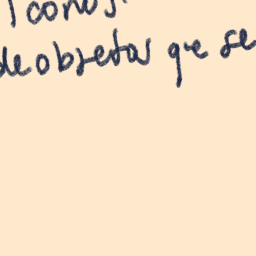 iconos
de objetos que se